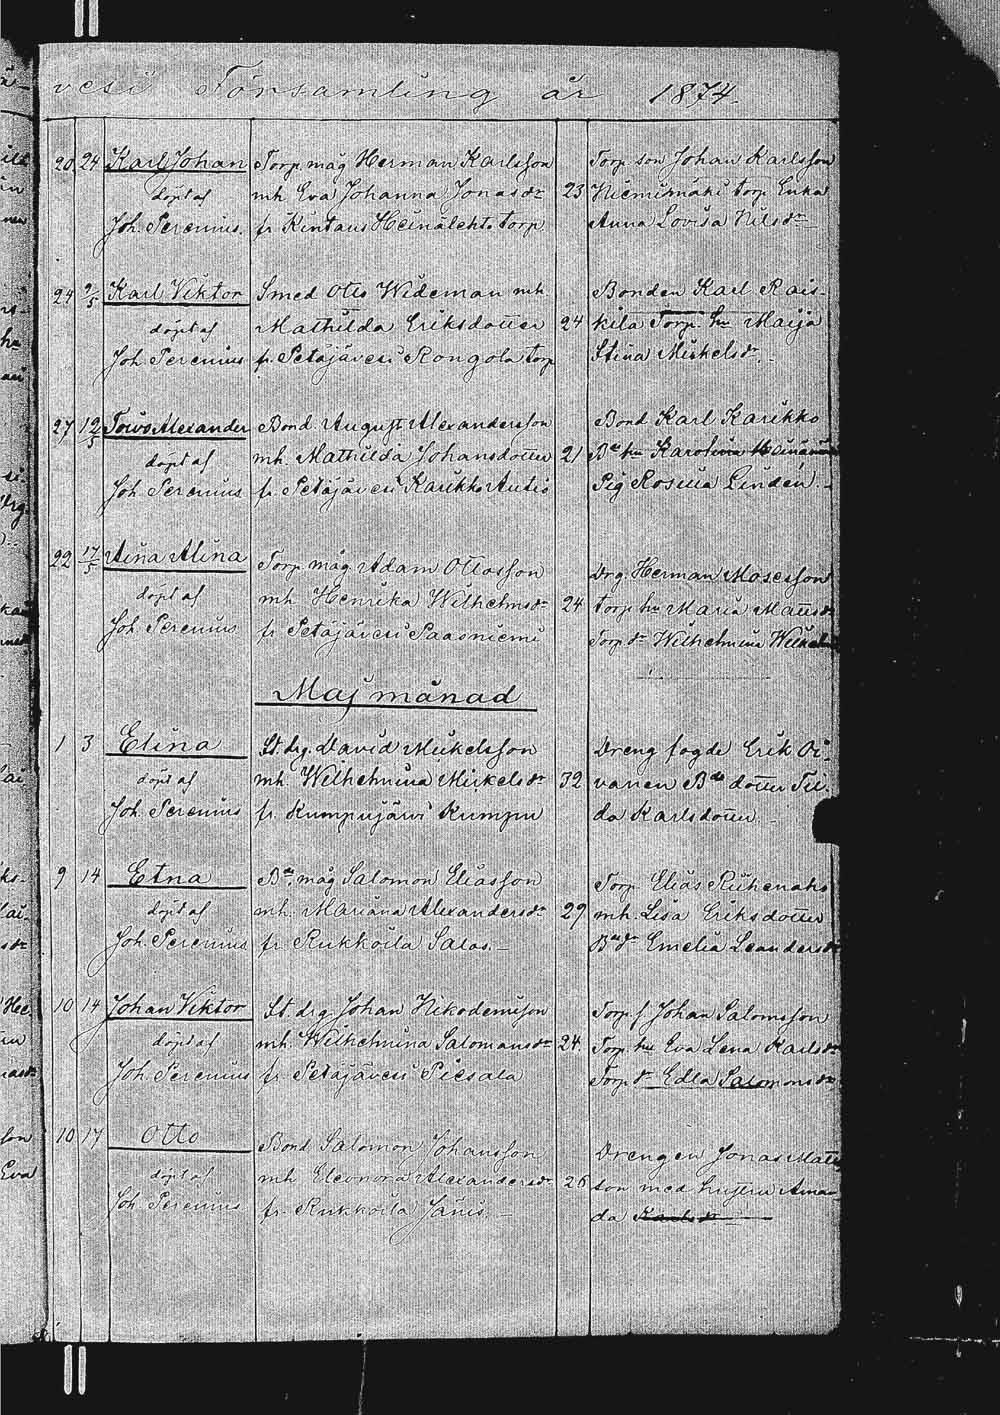 vesi Församling år 1874.
20 24 Karl Johan Torp. måg Herman Karlsson Torp son Johan Karlsson
döpt af mh Eva Johanna Jonasdr 23 Niemismäki torp. Enka
Joh. Perenius. fr Kintaus Heinälehto torp. Anna Lovisa Nilsdr
24 2/5 Karl Viktor Smed Otto Wideman mh. Bonden Karl Rais-
döpt af Mathilda Eriksdotter 24 kila Torp. hu Maija
Joh. Perenius fr. Petäjävesi Rongola torp Stina Mickelsdr.
27 12/5 Toivo Alexander Bond August Alexandersson Bond Karl Karikko
döpt af mh. Mathilda Johansdotter 21 Bde hu Karolina
Joh Perenius fr. Petäjävesi Karikko Autio Pig Rosina Linden.
22 17/5 Aina Alina Torp. måg Adam Ottosson Drg. Herman Mosesson
döpt af mh. Henrika Wilhelmsdr 24 torp hu Maria Mattsdr
Joh Perenius fr Petäjävesi Paasniemi Torp. dr Wilhelmina
Maj månad
1 3 Elina St. drg. David Mickelsson Dreng fogde Erik Oi-
döpt af mh. Wilhelmina Mickelsdr 32 vanen Bde dotter Tii-
Joh. Perenius fr. Kumpujärvi Kumpu da Karlsdotter.
9 14 Etna Bde måg Salomon Eliasson Torp. Elias Riihenaho
döpt af mh. Mariana Alexandersdr 29 mh. Lisa Eriksdotter
Joh. Perenius fr Kukkoila Salos. Bde dr Emelia Leandersdr
10 14 Johan Viktor St. drg Johan Nikodemisson Torp. s. Johan Salomsson
döpt af mh Wilhelmina Salomonsdr 24. Torp. hu Eva Lena Karlsdr
Joh. Perenius fr Petäjävesi Piesala Torp. dr Edla Salomonsdr
10 17 Otto Bond Salomon Johansson Drengen Jonas Matts
döpt af mh Eleonora Alexandersdr 26 son med hustru Aman-
Joh Perenius fr. Kukkoila Jänis. da Karlsdr